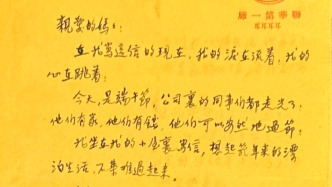 聯華第一廠
親愛的媽：
在我寫這信的現在，我的淚在流着，我的
心在跳着；
今天，是端午節，公司裏的同事們都走光了；
他們有家，他們有錢，他們可以安然地過節；
我坐在我的小房裏寫信，想起幾年來的漂
泊生活，不禁難過起來。